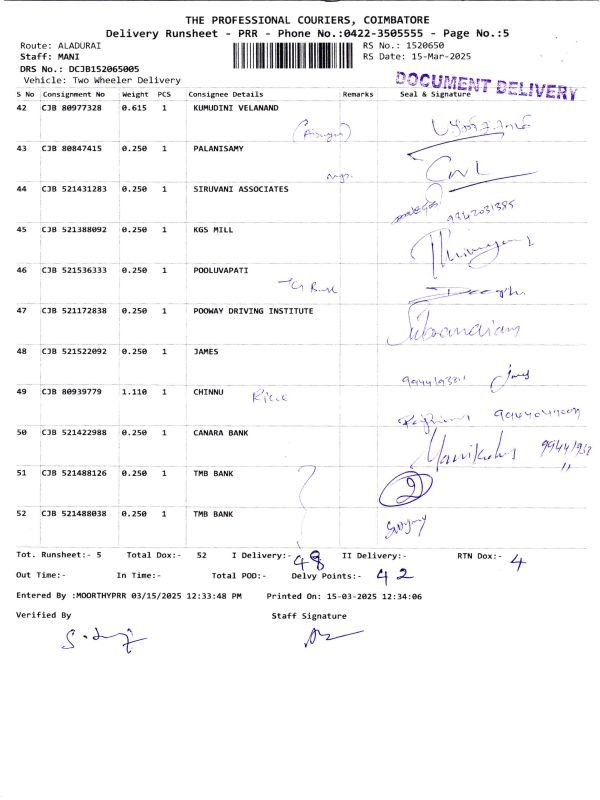 THE PROFESSIONAL COURIERS, COIMBATORE
Delivery Runsheet - PRR - Phone No.:0422-3505555 - Page No.:5
Route: ALADURAI
RS No.: 1520650
Staff: MANI
RS Date: 15-Mar-2025
DRS No.: DCJB152065005
Vehicle: Two Wheeler Delivery
DOCUMENT DELIVERY
S No Consignment No Weight PCS Consignee Details Remarks Seal & Signature
42 CJB 80977328 0.615 1 KUMUDINI VELANAND
43 CJB 80847415 0.250 1 PALANISAMY
44 CJB 521431283 0.250 1 SIRUVANI ASSOCIATES
9342031385
45 CJB 521388092 0.250 1 KGS MILL
46 CJB 521536333 0.250 1 POOLUVAPATI
47 CJB 521172838 0.250 1 POOWAY DRIVING INSTITUTE
48 CJB 521522092 0.250 1 JAMES
49 CJB 80939779 1.110 1 CHINNU
50 CJB 521422988 0.250 1 CANARA BANK
51 CJB 521488126 0.250 1 TMB BANK
2
52 CJB 521488038 0.250 1 TMB BANK
Tot. Runsheet:- 5 Total Dox:- 52 I Delivery:- 48 II Delivery:- RTN Dox:- 4
Out Time:- In Time:- Total POD:- Delvy Points:- 42
Entered By :MOORTHYPRR 03/15/2025 12:33:48 PM Printed On: 15-03-2025 12:34:06
Verified By Staff Signature